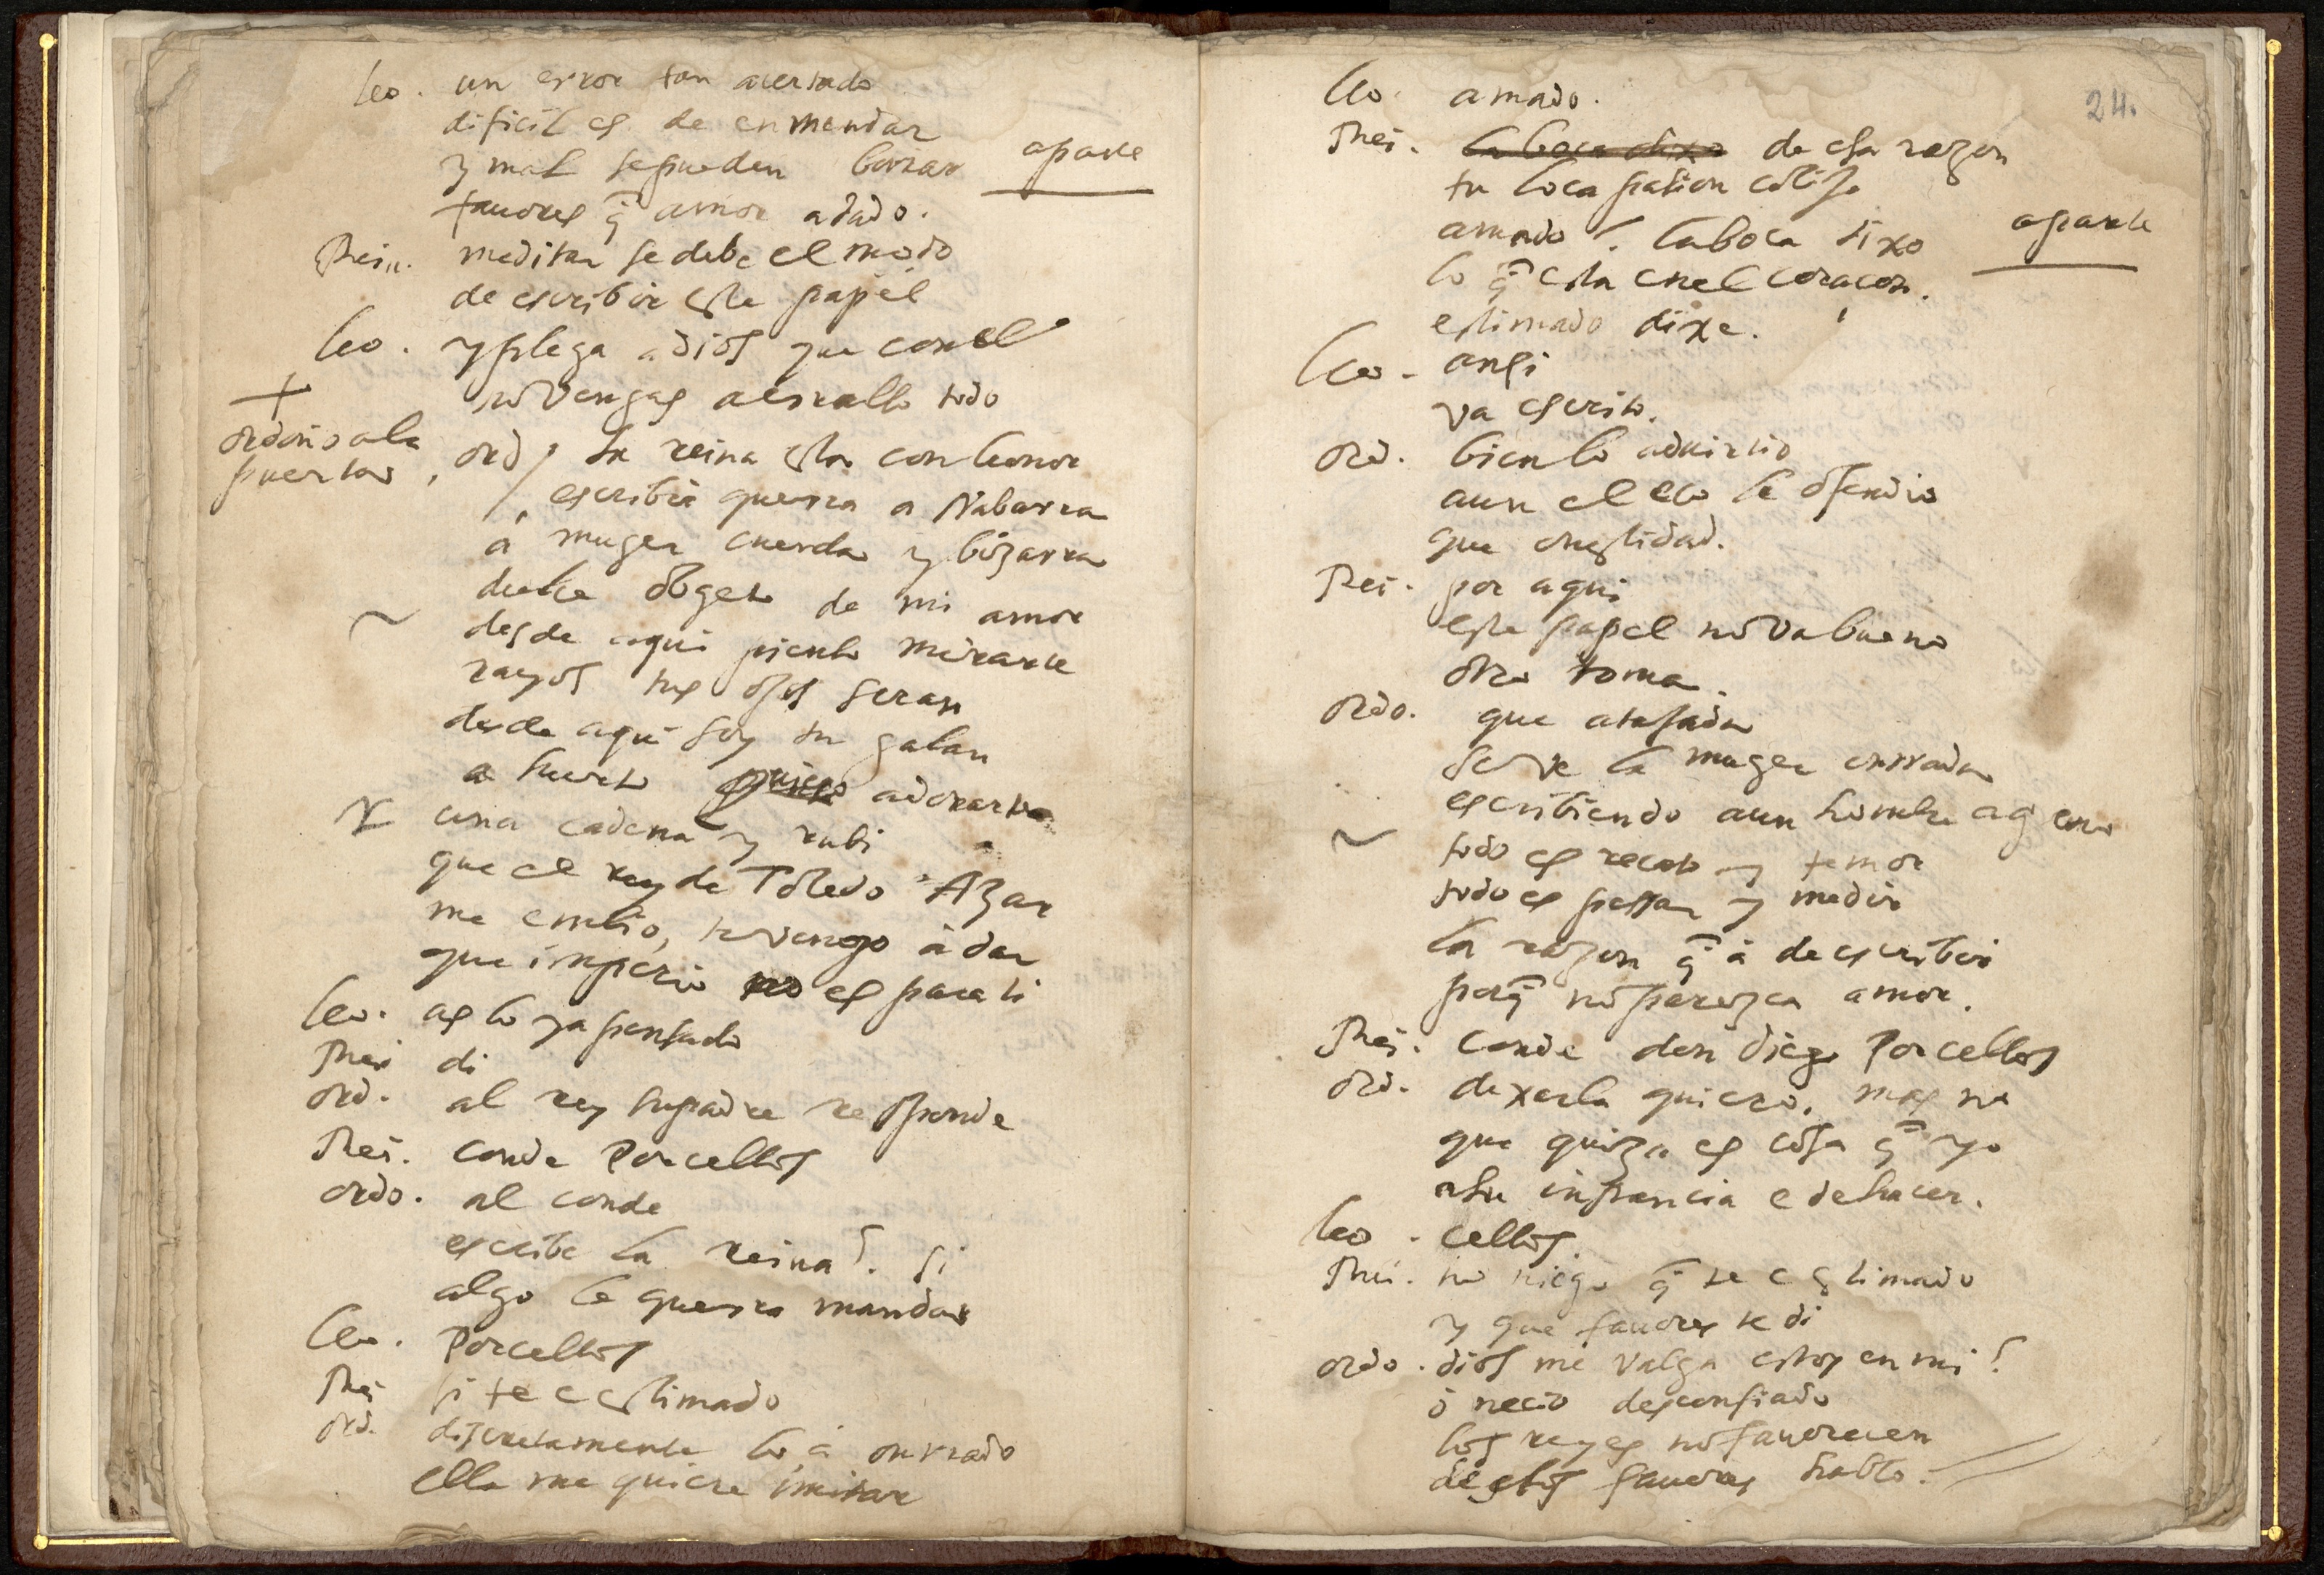 Leo. un error tan acertado
dificil es de enmendar
y mal se pueden borrar aparte
fauores q̃ amor a dado.
Rein. meditar se debe el modo
de escribir este papel
Leo. y plega a dios que con el
no vengas a errallo todo
ordoño a la
puerta
ord. la reina esta con leonor
escribir querra a Nabarra
a muger cuerda y bizarra
dulce obgeto de mi amor
desde aqui pienso mirarte
rayos tus ojos seran
desde aqui soy tu galan
a hurto quiero adorarte
una cadena y rubi
que el rey de Toledo Azar
me embio, te vengo a dar
que imperio no es para ti
Leo. as lo ya pensado
Rei di
ord. al rey su padre responde
Rei. conde Porcellos
ordo. al conde
escribe la reina? si
algo le querra mandar
Leo. Porcellos
Rei si te e estimado
ord. discretamente lo a onrrado
ella me quiere imitar
24.
Leo. amado.
Rei. la boca dixo de esa razon
tu loca pasion colijo
amado? la boca dixo aparte
lo q̃ esta en el coracon.
estimado dixe.
Leo. ansi
va escrito.
ord. bien lo aduirtio
aun el eco le ofendio
que onestidad.
Rei. por aqui
este papel no va bueno
otro toma.
ordo. que atajada
se ve la muger onrrada
escribiendo a un hombre ageno
todo es recato y temor
todo es pessar y medir
la razon q̃ a de escribir
porq̃ no parezca amor.
Rei. conde don diego Porcellos
ord. dexarla quiero, mas no
que quiza es cosa q̃ yo
a su instancia e de hacer.
Leo. cellos.
Rei. no niego q̃ te e estimado
y que fauores te di
ordo. dios me valga estoy en mi?
o necio desconfiado
los reyes no fauorecen
de estos fauores hablo.